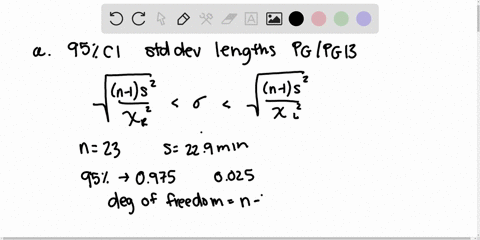 a. 95% CI std dev lengths PG/PG13
√((n-1)s²/X_R²) < σ < √((n-1)s²/X_L²)
n = 23 s = 22.9 min
95% → 0.975 0.025
deg of freedom = n -